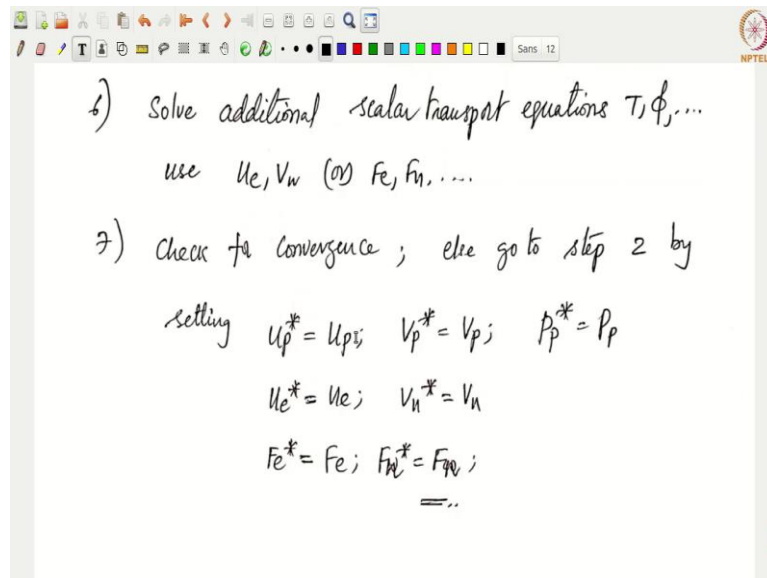 Sans 12
NPTEL
6) Solve additional scalar transport equations T, ϕ, ....
use Ue, Vw (or) Fe, Fn, ....
7) Check for convergence ; else go to step 2 by
setting Up* = Up; Vp* = Vp; Pp* = Pp
Ue* = Ue; Vn* = Vn
Fe* = Fe; Fn* = Fn;